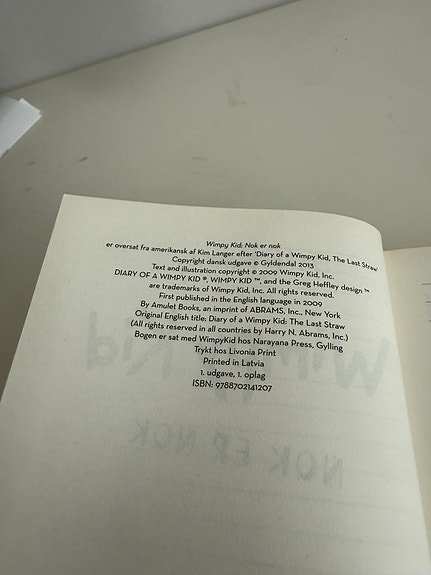 Wimpy Kid: Nok er nok
er oversat fra amerikansk af Kim Langer efter 'Diary of a Wimpy Kid, The Last Straw'
Copyright dansk udgave © Gyldendal 2013
Text and illustration copyright © 2009 Wimpy Kid, Inc.
DIARY OF A WIMPY KID ®, WIMPY KID ™, and the Greg Heffley design ™
are trademarks of Wimpy Kid, Inc. All rights reserved.
First published in the English language in 2009
By Amulet Books, an imprint of ABRAMS, Inc., New York
Original English title: Diary of a Wimpy Kid: The Last Straw
(All rights reserved in all countries by Harry N. Abrams, Inc.)
Bogen er sat med WimpyKid hos Narayana Press, Gylling
Trykt hos Livonia Print
Printed in Latvia
1. udgave, 1. oplag
ISBN: 9788702141207
NOK ER NOK